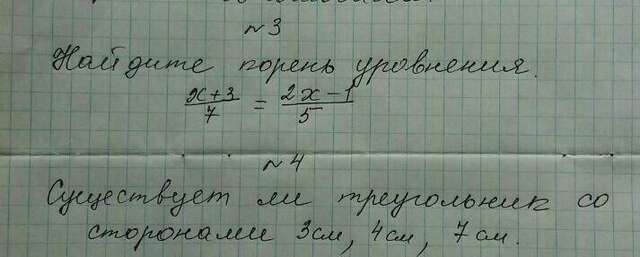 №3
Найдите корень уровнения.
x+3/7 = 2x-1/5
№4
Существует ли треугольник со
сторонами 3см, 4см, 7см.